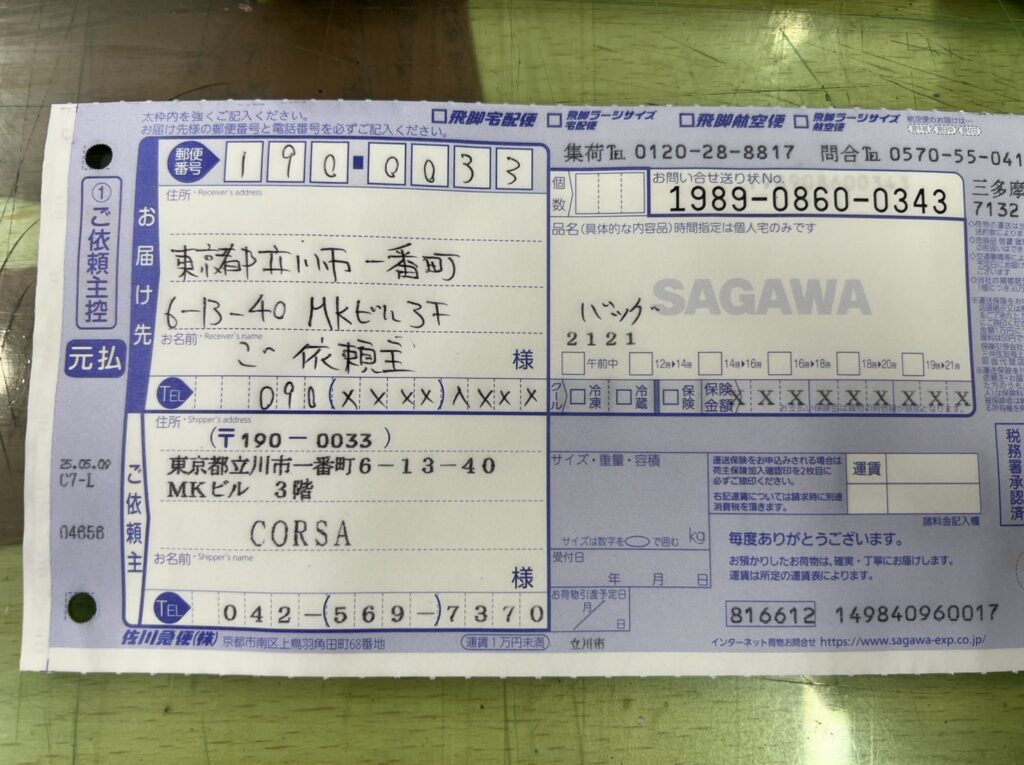 太枠内を強くご記入ください。
お届け先様の郵便番号と電話番号を必ずご記入ください。
飛脚宅配便
飛脚ラージサイズ宅配便
飛脚航空便
飛脚ラージサイズ航空便
集荷TEL 0120-28-8817 問合TEL 0570-55-041
①ご依頼主控
元払
25.05.09
C7-L
04656
お届け先
郵便番号 190-0033
住所・Receiver's address
東京都立川市一番町
6-13-40 MKビル3F
お名前・Receiver's name
ご依頼主 様
TEL 090(xxxx)xxxx
個数
お問い合せ送り状No.
1989-0860-0343
三多摩
7132
品名(具体的な内容品)時間指定は個人宅のみです
SAGAWA
バッグ
2121
午前中 12時▸14時 14▸16時 16▸18時 18▸20時 19▸21時
クール 冷凍 冷蔵 保険 保険金額 X X X X X X X X X
ご依頼主
住所・Shipper's address
(〒190-0033 )
東京都立川市一番町6-13-40
MKビル 3階
CORSA
お名前・Shipper's name
様
TEL 042-(569-)7370
サイズ・重量・容積
サイズは数字を○で囲む kg
受付日
年 月 日
お荷物引渡予定日
月/日
運送保険をお申込みされる場合は
荷主保険加入確認印を2枚目に
必ずご捺印ください。
右記運賃については請求時に別途
消費税を頂きます。
運賃
諸料金記入欄
税務署承認済
毎度ありがとうございます。
お預かりしたお荷物は、確実・丁寧にお届けします。
運賃は所定の運賃表によります。
816612 149840960017
佐川急便(株) 京都市南区上鳥羽角田町68番地
運賃1万円未満
立川市
インターネット荷物お問合せ https://www.sagawa-exp.co.jp/